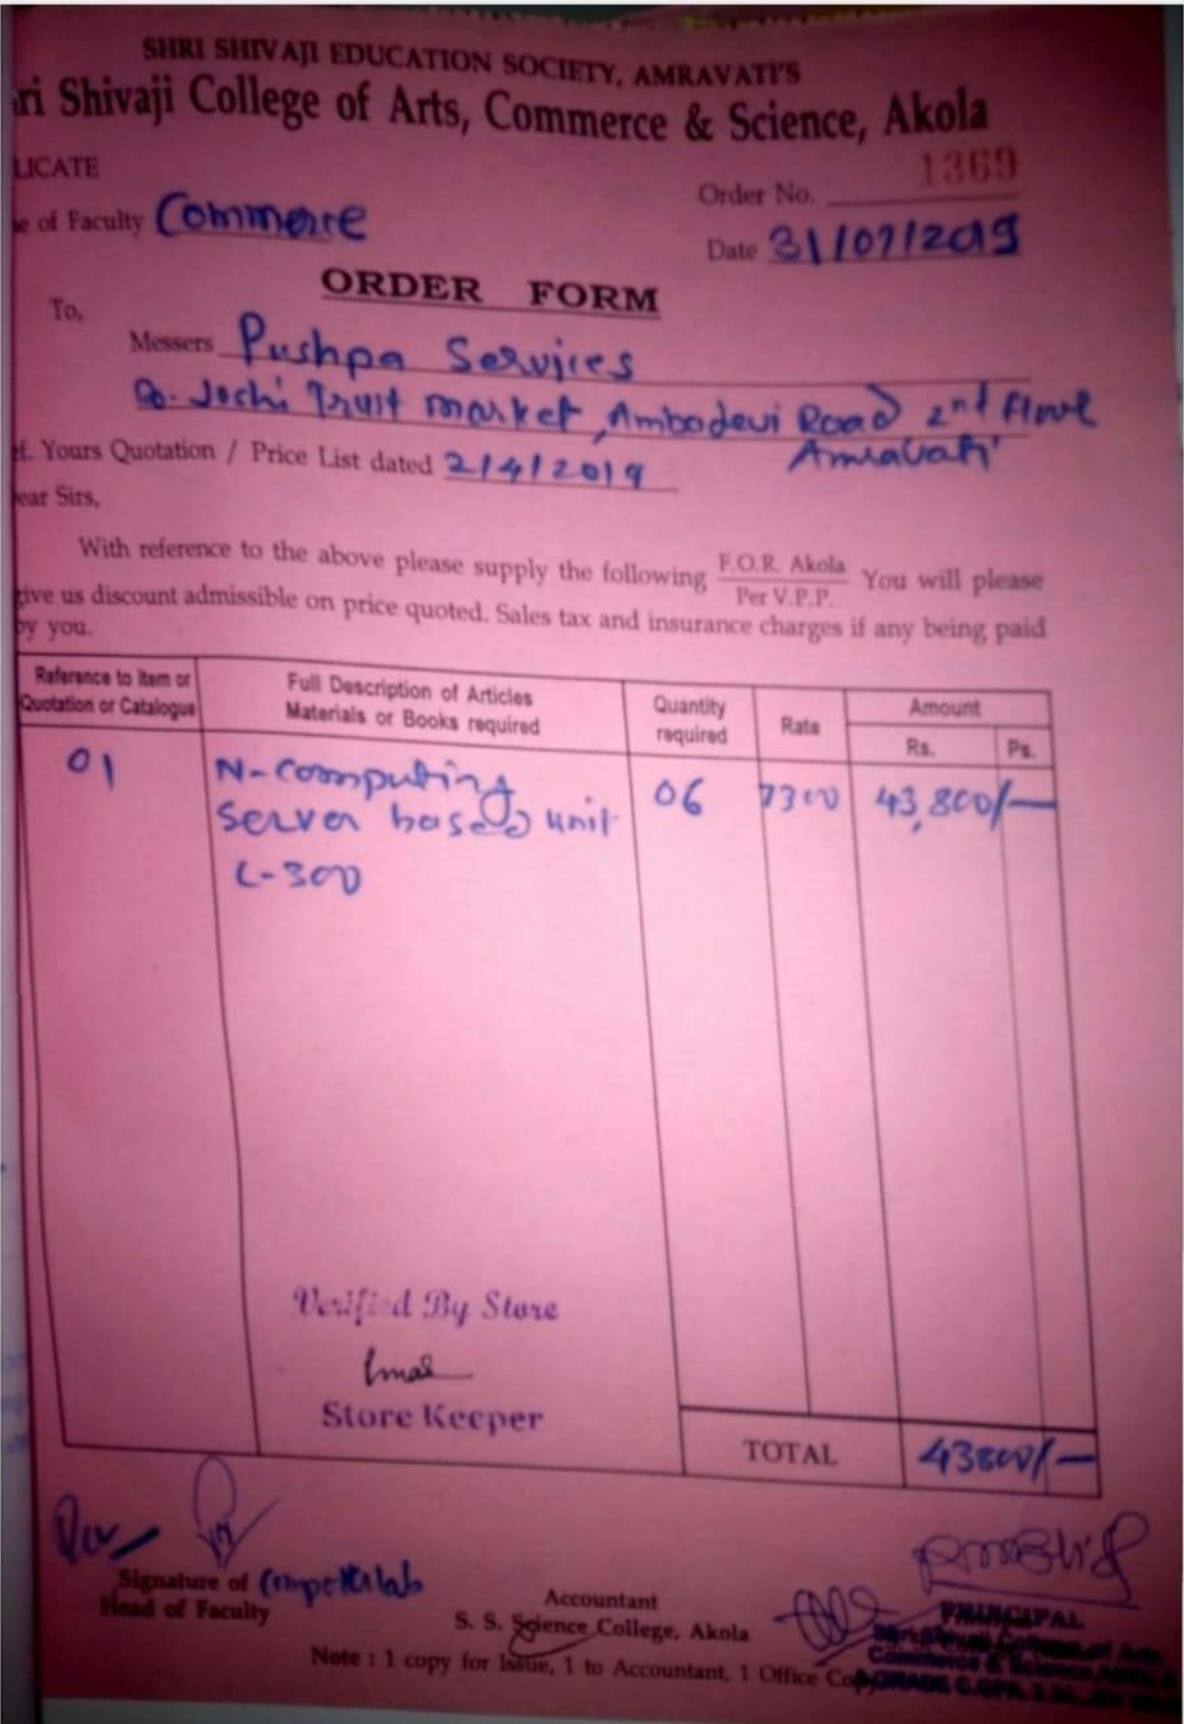 SHRI SHIVAJI EDUCATION SOCIETY, AMRAVATI'S
ri Shivaji College of Arts, Commerce & Science, Akola
LICATE
Order No. 1369
e of Faculty Commerce
Date 31/07/2019
ORDER FORM
To,
Messers Pushpa Services
Joshi Trust market, Ambadevi Road 2nd floor
Amravati
f. Yours Quotation / Price List dated 2/4/2019
ear Sirs,
With reference to the above please supply the following F.O.R. Akola / Per V.P.P. You will please
give us discount admissible on price quoted. Sales tax and insurance charges if any being paid
by you.
Reference to item or Quotation or Catalogue Full Description of Articles Materials or Books required Quantity required Rate Amount
Rs. Ps.
01 N-computing 06 7300 43,800/—
Server based unit
L-300
Verified By Store
Store Keeper
TOTAL 43800/—
Signature of Computer lab
Head of Faculty
Accountant
S. S. Science College, Akola
PRINCIPAL
Note : 1 copy for Issue, 1 to Accountant, 1 Office Copy